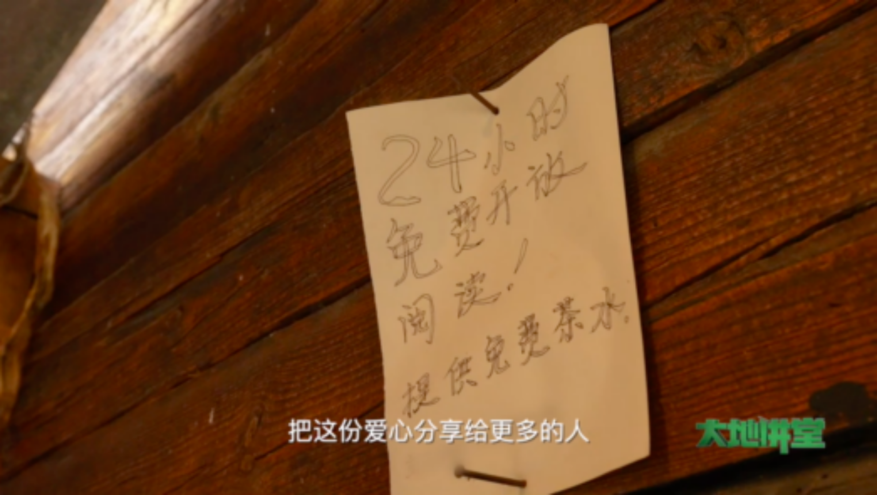 24小时
免费开放
阅读！
提供免费茶水.
把这份爱心分享给更多的人
大地讲堂